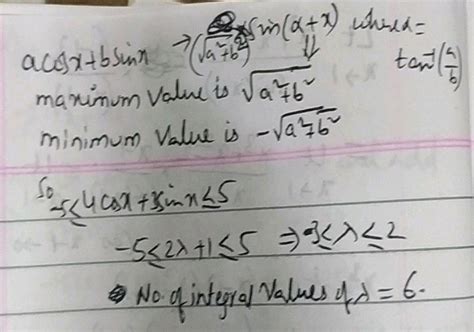 acosx+bsinx → (√a²+b²) sin(α+x) where α = tan⁻¹(a/b)
maximum value is √a²+b²
minimum value is -√a²+b²
So
-5≤4cosx+3sinx≤5
-5≤2λ+1≤5 ⇒ -3≤λ≤2
No. of integral values of λ = 6.